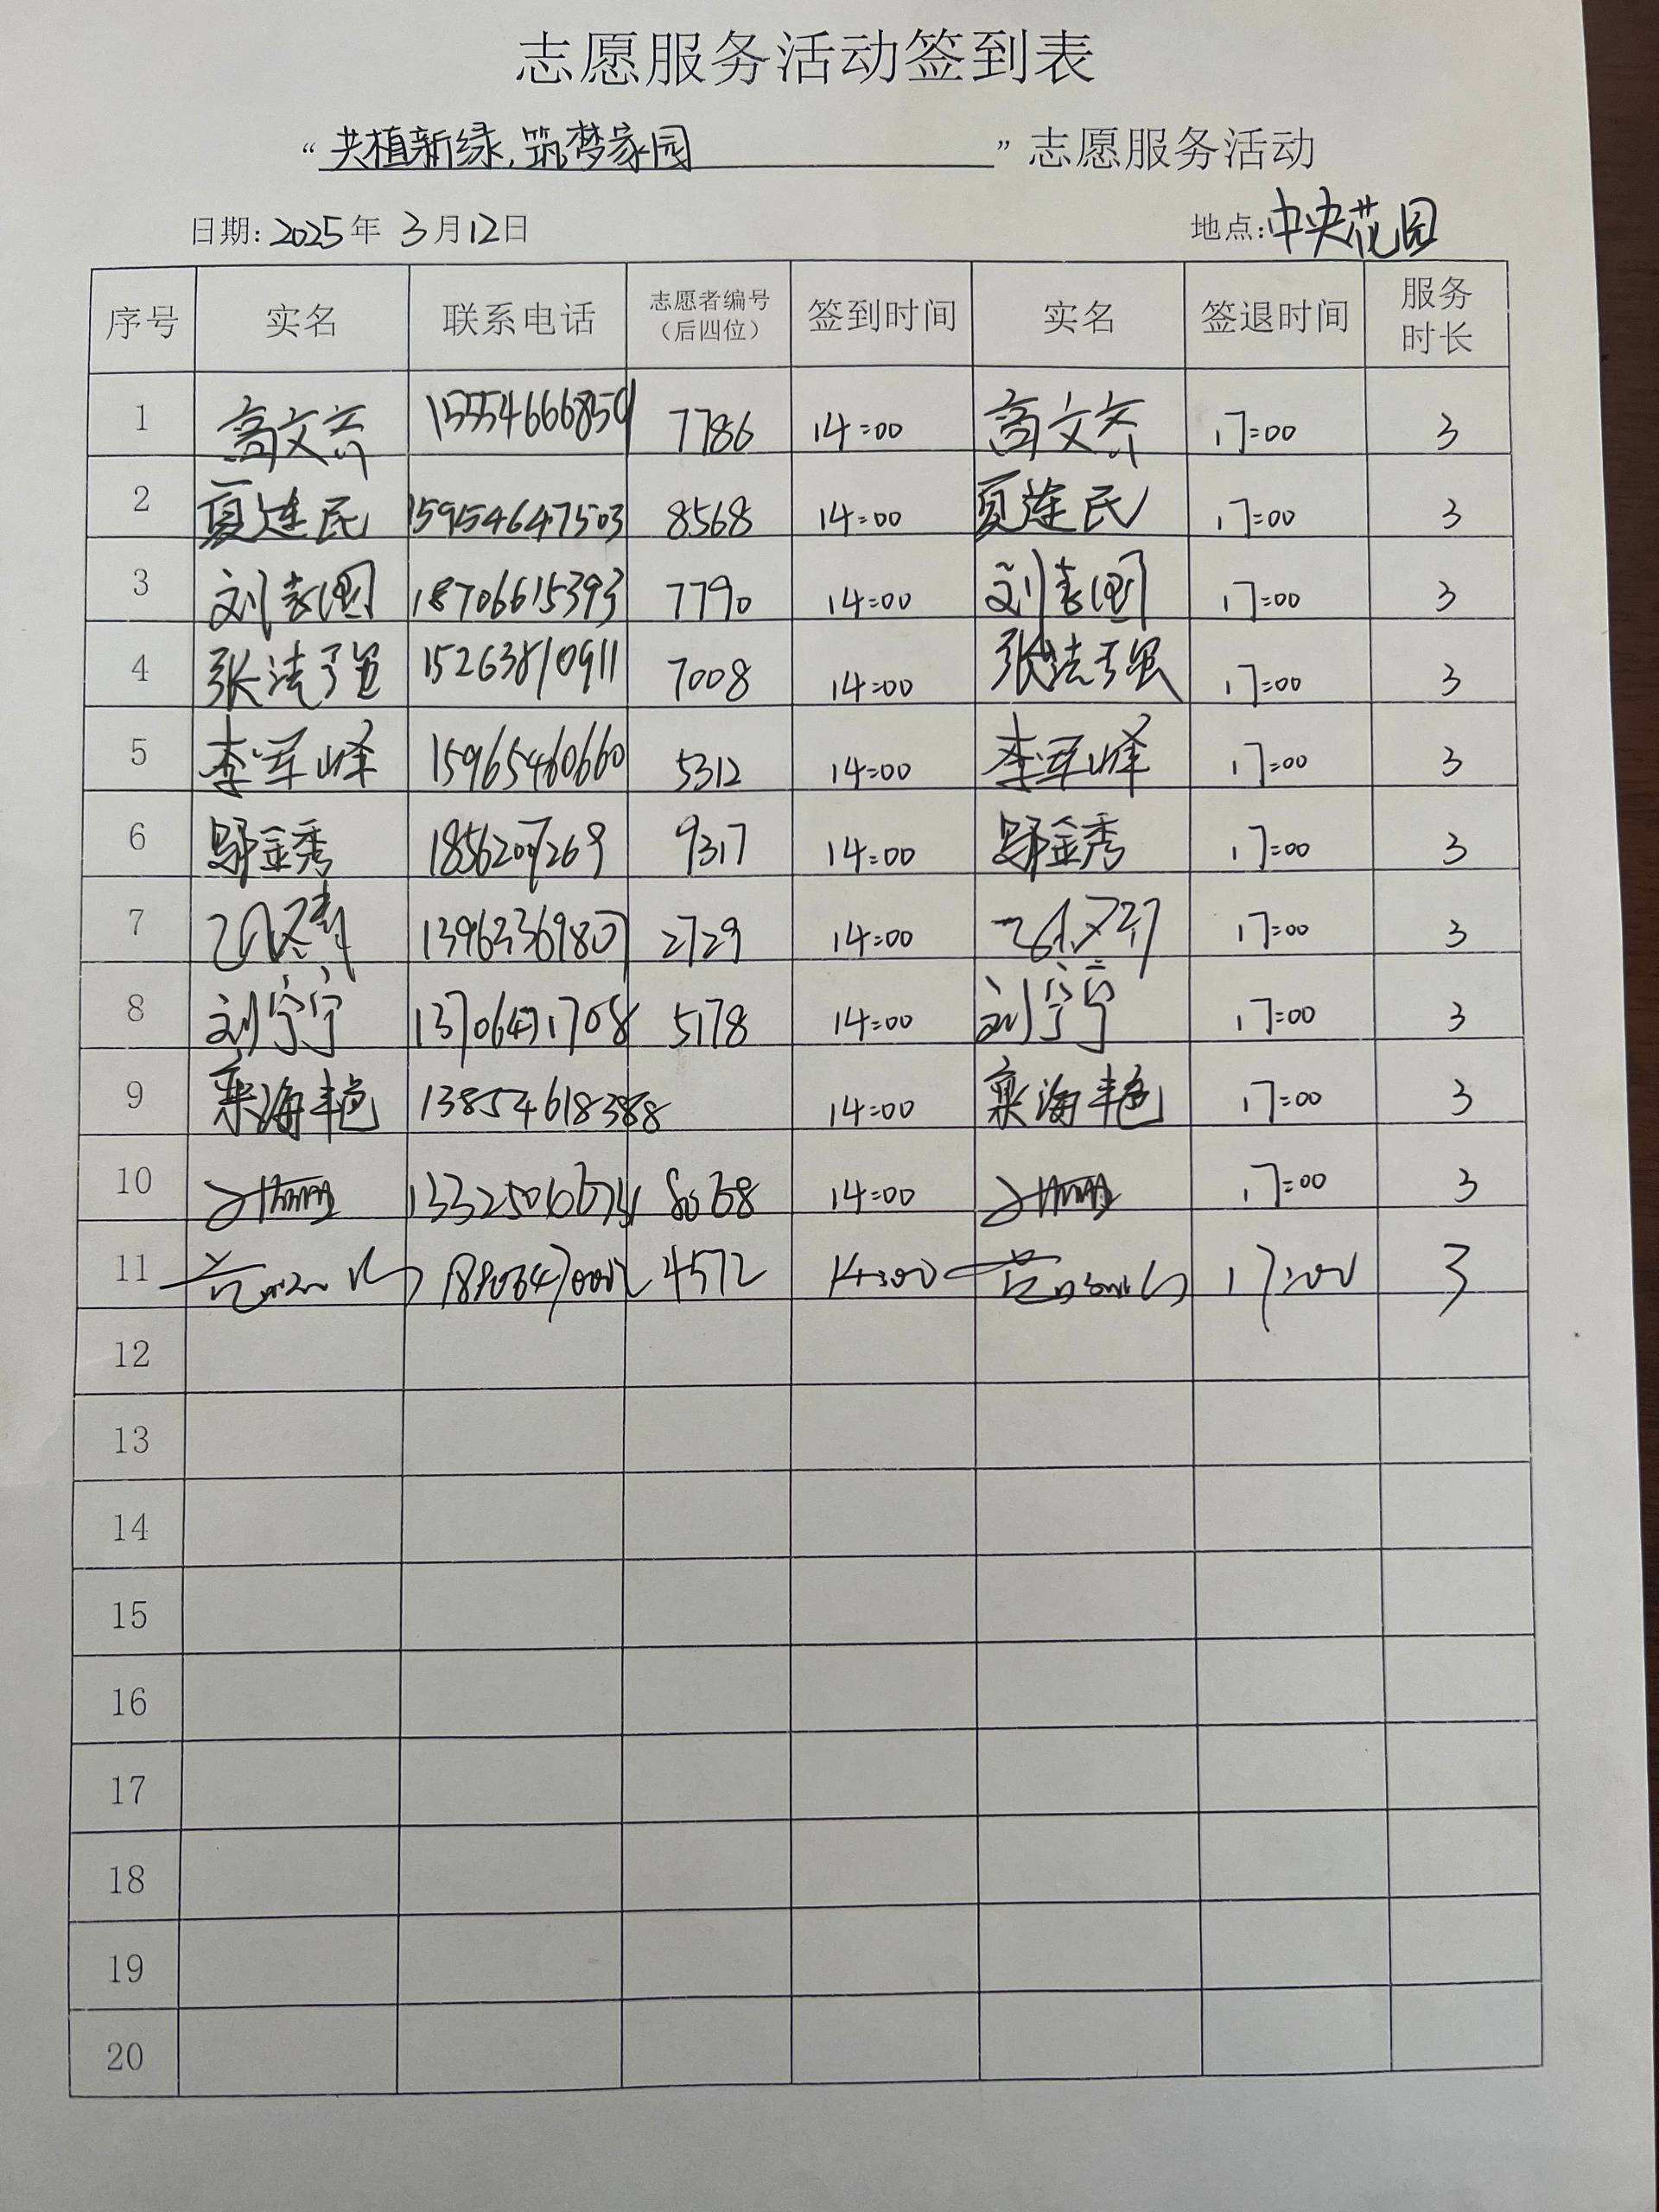 志愿服务活动签到表
“共植新绿，筑梦家园”志愿服务活动
日期：2025年 3月12日 地点：中央花园
序号 实名 联系电话 志愿者编号（后四位） 签到时间 实名 签退时间 服务时长
1 高文齐 7786 14:00 高文齐 17:00 3
2 夏连民 15954647503 8568 14:00 夏连民 17:00 3
3 刘 18706615393 7790 14:00 刘 17:00 3
4 张洁强 15263810911 7008 14:00 张洁强 17:00 3
5 李军峰 15965460660 5312 14:00 李军峰 17:00 3
6 金秀 9317 14:00 金秀 17:00 3
7 2729 14:00 17:00 3
8 刘宁宁 13706471708 5178 14:00 刘宁宁 17:00 3
9 海艳 13854618388 14:00 海艳 17:00 3
10 14:00 17:00 3
11 4572 14:00 17:00 3
12
13
14
15
16
17
18
19
20